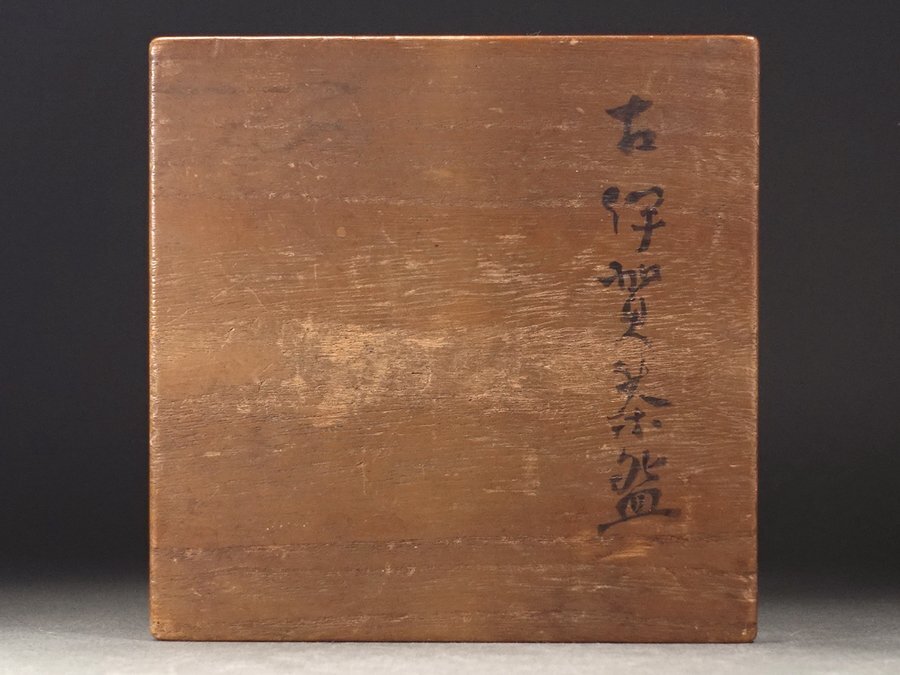 古伊賀茶盌